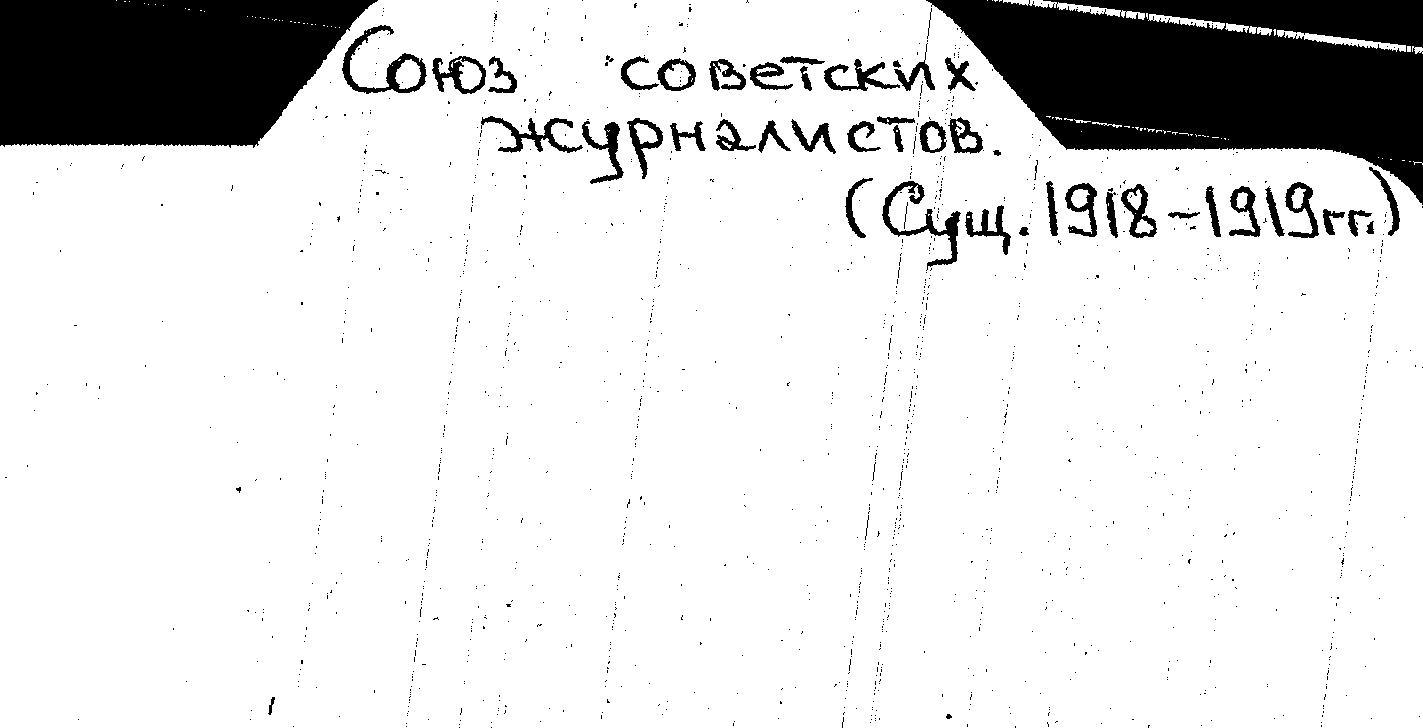 Союз советских
журналистов.
(Сущ. 1918-1919гг.)